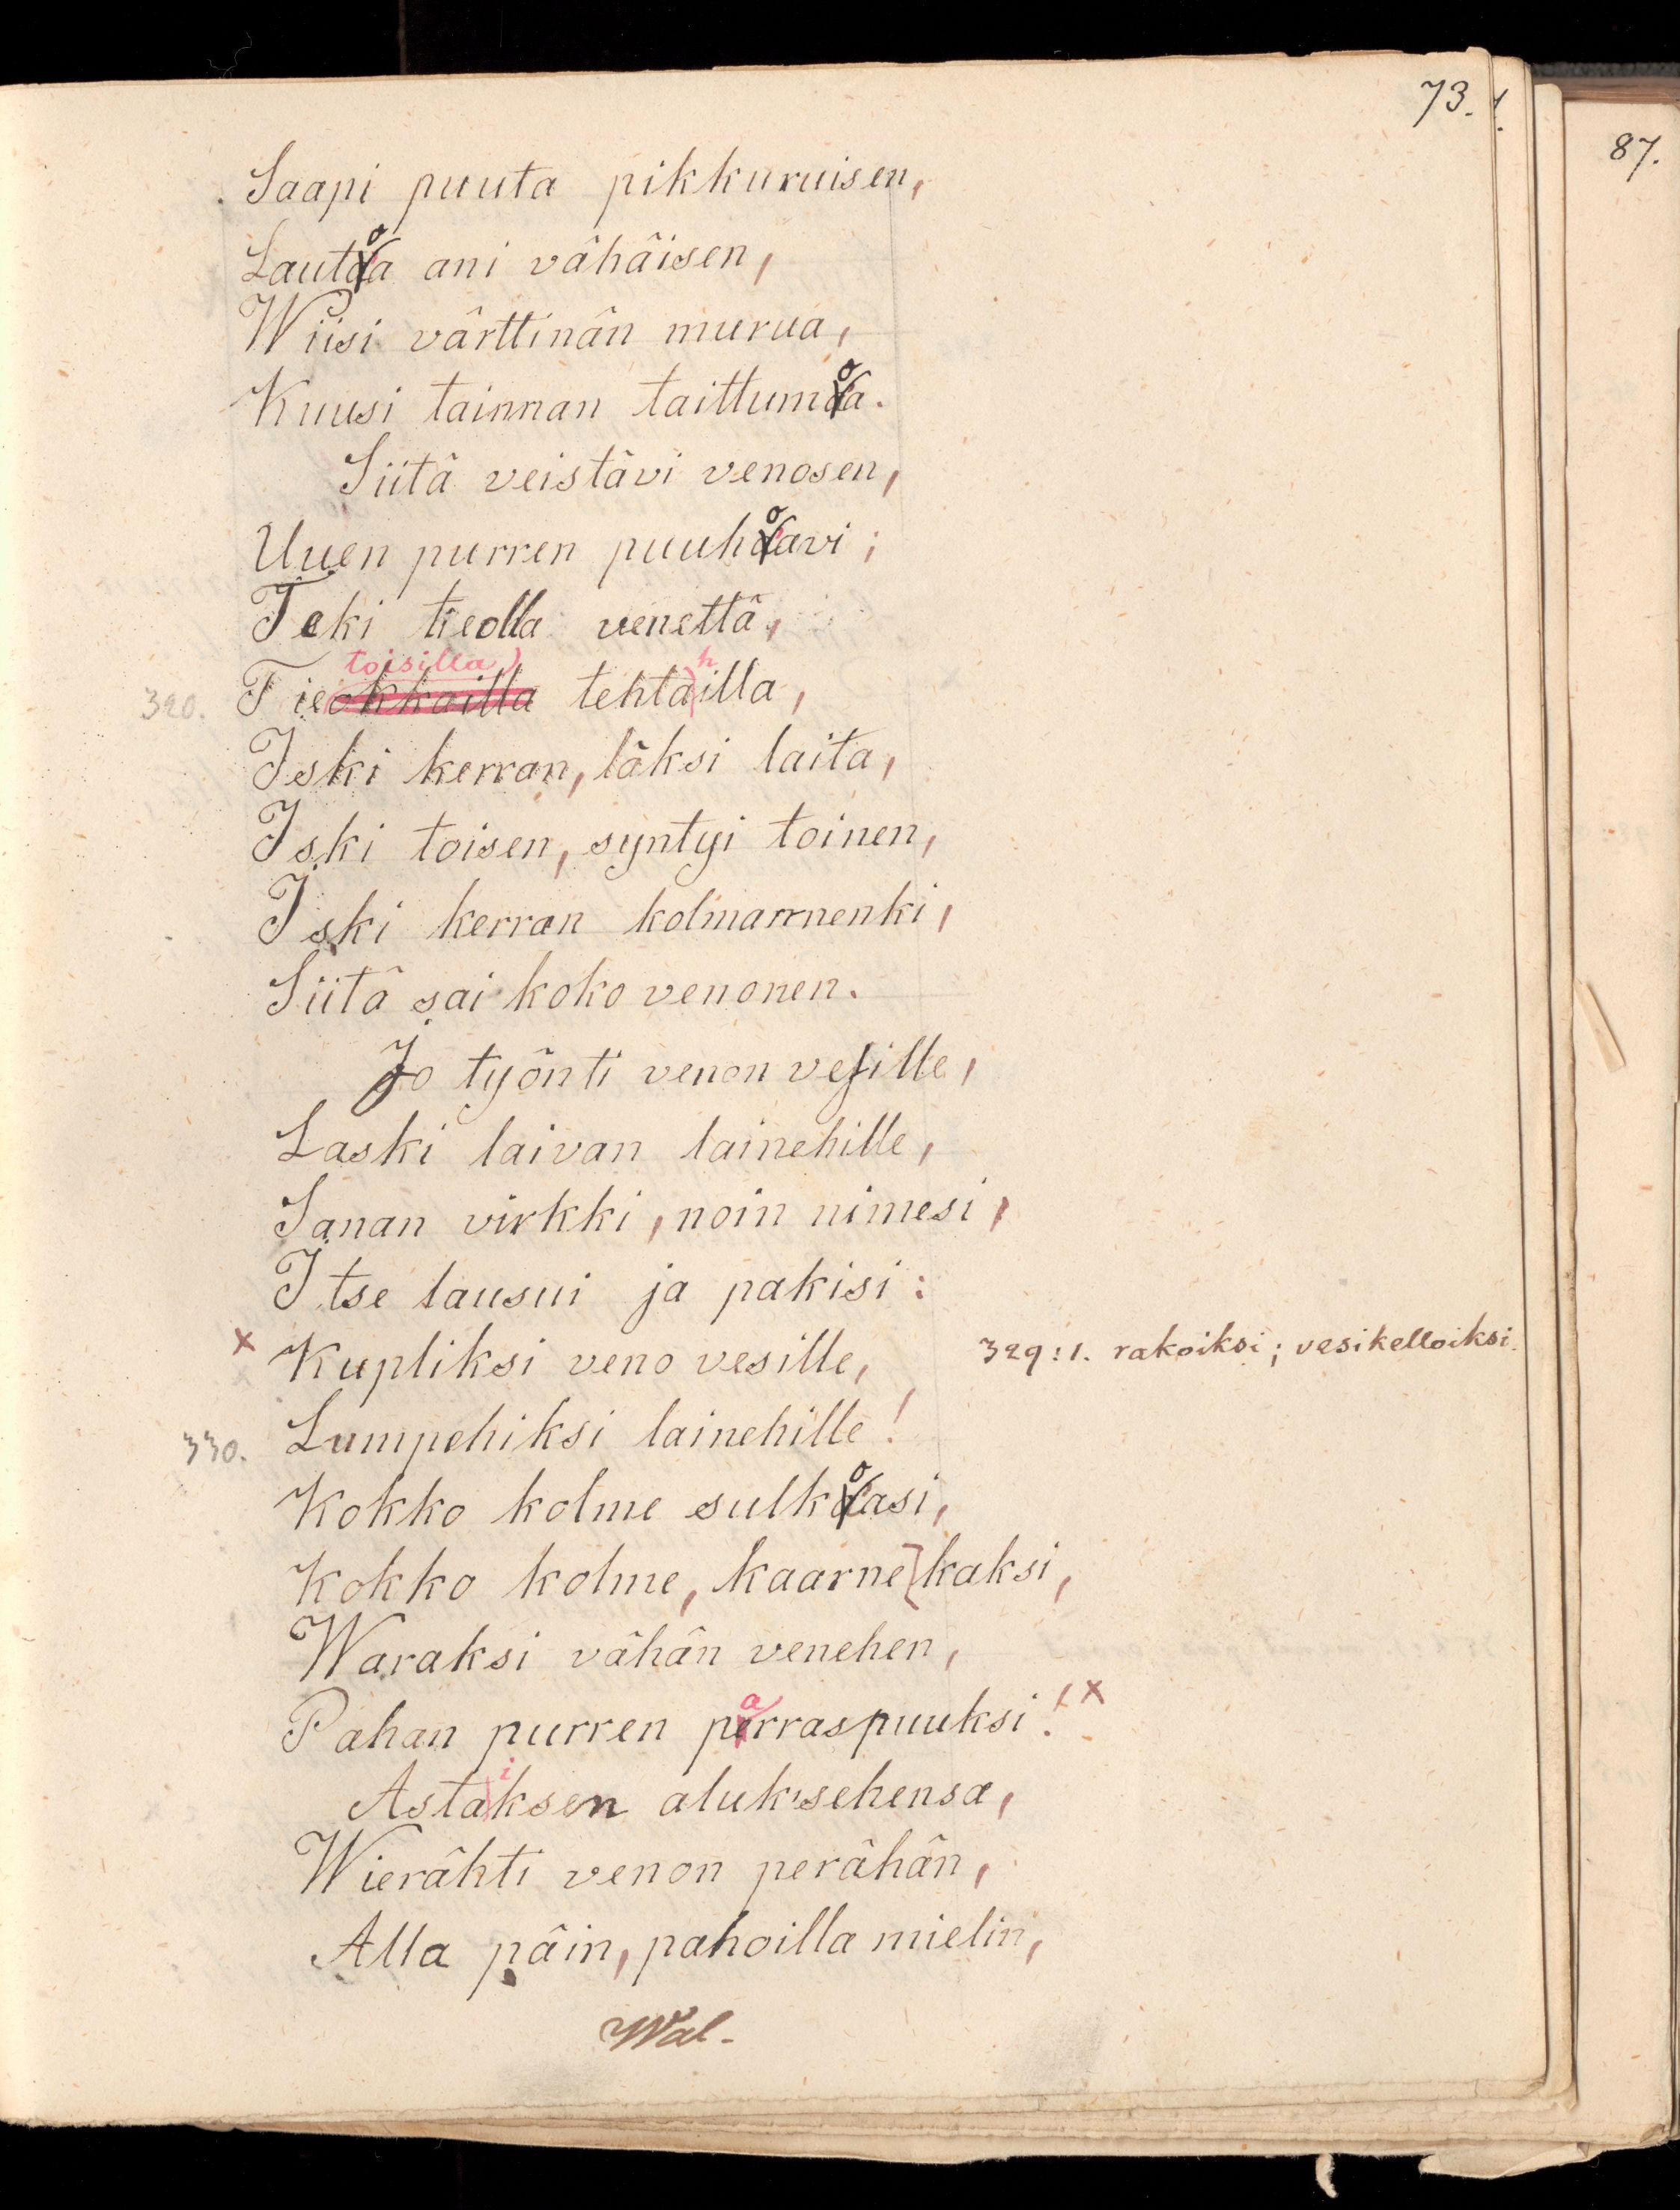 73.
87.
Saapi puuta pikkuruisen,
Lautoa ani vähäisen,
Wiisi värttinän murua,
Kuusi tainnan taittumoa.
Siitä veistävi venosen,
Uuen purren puuhoavi;
Teki tieolla venettä,
toisilla h
320. Tieokkailla tehtailla,
Iski kerran, läksi laita,
Iski toisen, syntyi toinen,
Iski kerran kolmannenki,
Siitä sai koko venonen.
Jo työnti venon vesille,
Laski laivan lainehille,
Sanan virkki, noin nimesi,
Itse lausui ja pakisi:
x Kupliksi veno vesille,
329:1. rakoiksi; vesikelloiksi.
330. Lumpehiksi lainehille!
Kokko kolme sulkoasi,
Kokko kolme, kaarne kaksi,
Waraksi vähän venehen,
Pahan purren parraspuuksi! x
Astaiksen aluksehensa,
Wierähti venon perähän,
Alla päin, pahoilla mielin,
Wal-